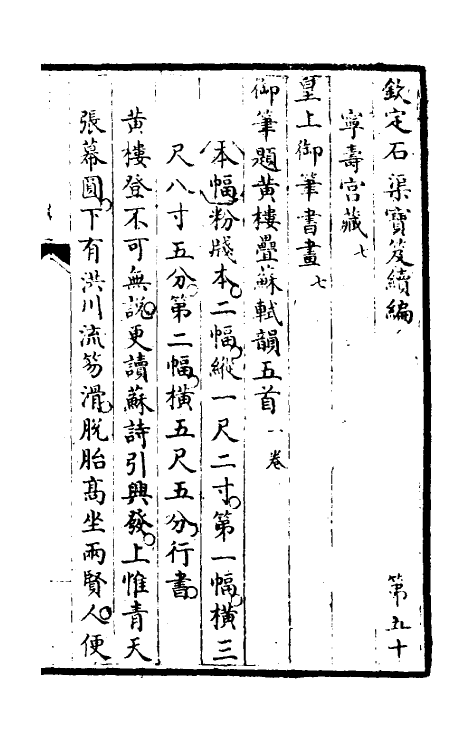 欽定石渠寶笈續編　第五十
寧壽宮藏七
皇上御筆書畫七
御筆題黃樓疊蘇軾韻五首一卷
本幅粉牋本二幅縱一尺二寸第一幅橫三
尺八寸五分第二幅橫五尺五分行書
黃樓登不可無說更讀蘇詩引興發上惟青天
張幕圓下有洪川流笏滑脫胎髙坐兩賢人便